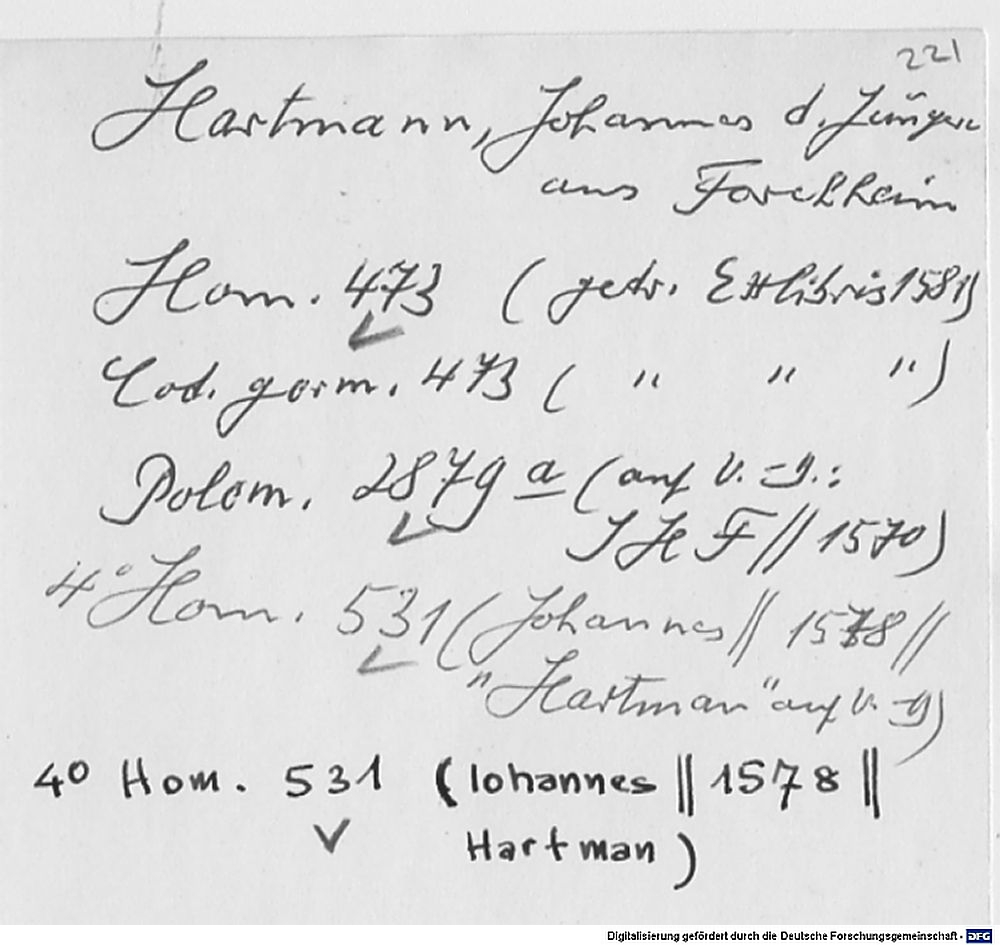 221
Hartmann, Johannes d. Jüngere
aus Forchheim
Hom. 473 (gedr. Exlibris 1581)
Cod. germ. 473 ( " " ")
Polem. 2879 a (auf V.-D.:
I H F // 1570)
4° Hom. 531 (Johannes // 1578 //
"Hartman" auf V.-D)
4° Hom. 531 (Iohannes || 1578 ||
Hartman)
Digitalisierung gefördert durch die Deutsche Forschungsgemeinschaft - DFG